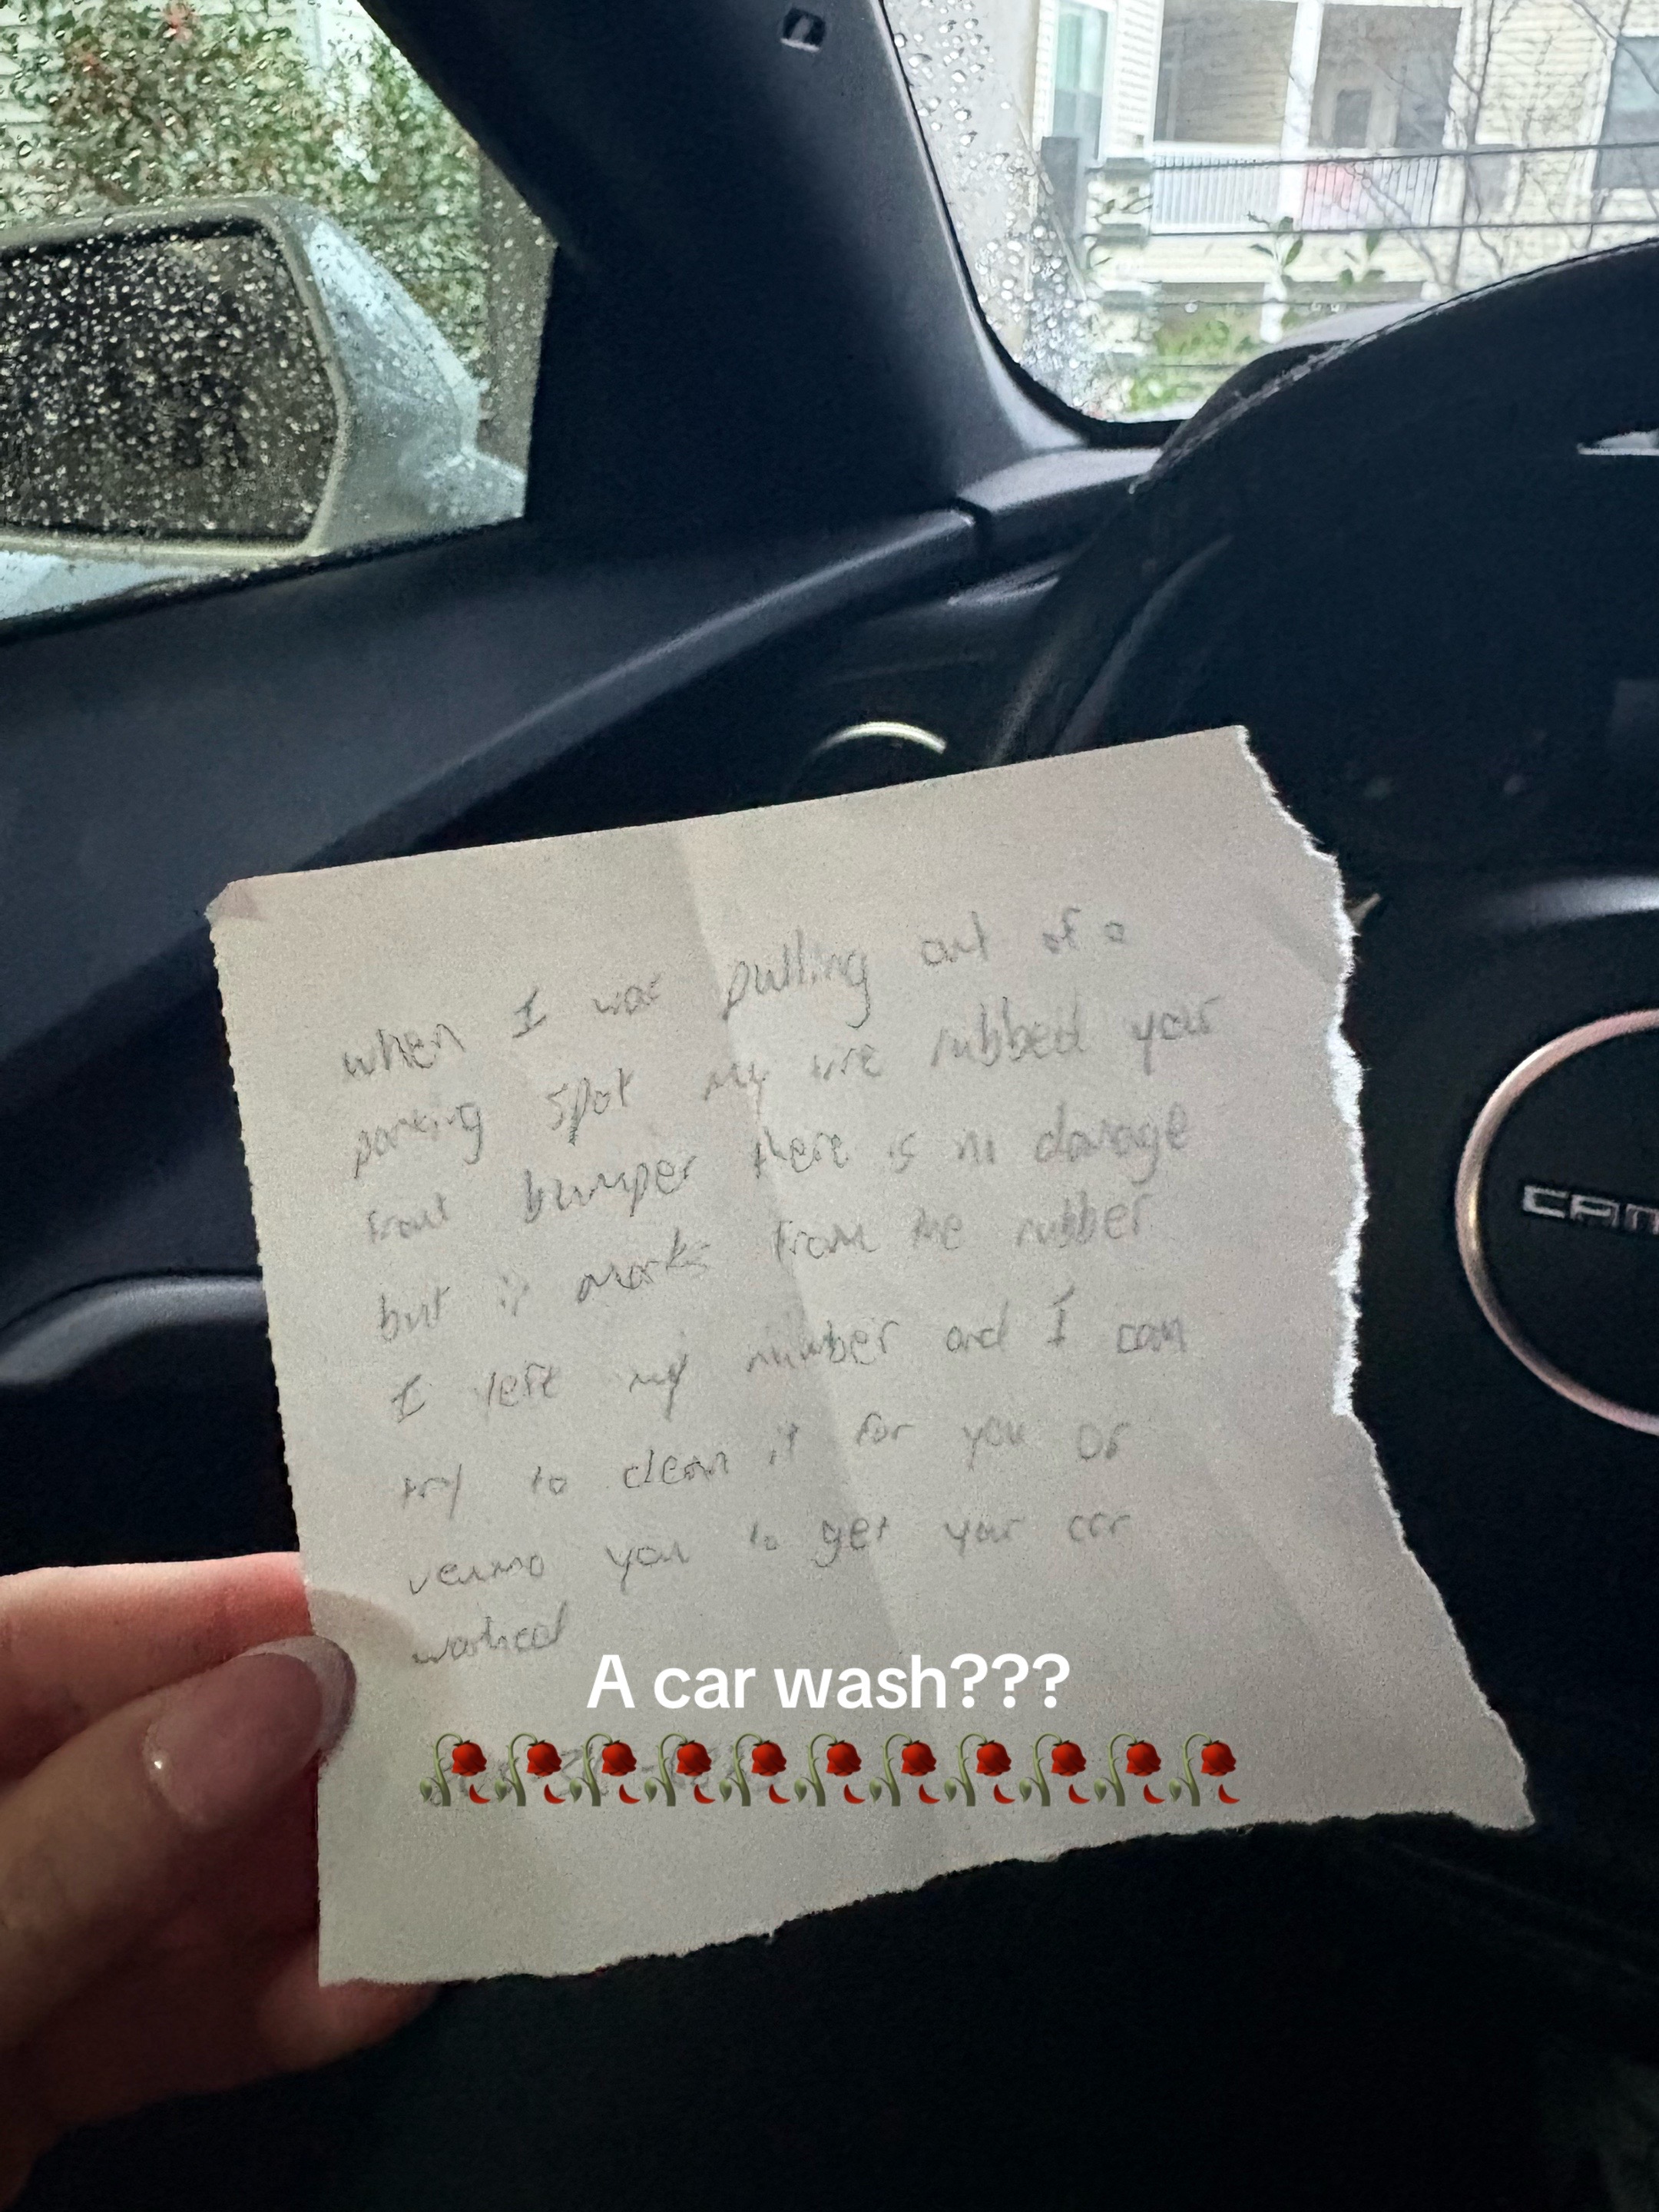 CAM
when I was pulling out of a
parking spot my tire rubbed your
front bumper there is no damage
but is marks from the rubber
I left my number and I can
try to clean it for you or
venmo you to get your car
washed
A car wash???
🥀🥀🥀🥀🥀🥀🥀🥀🥀🥀🥀